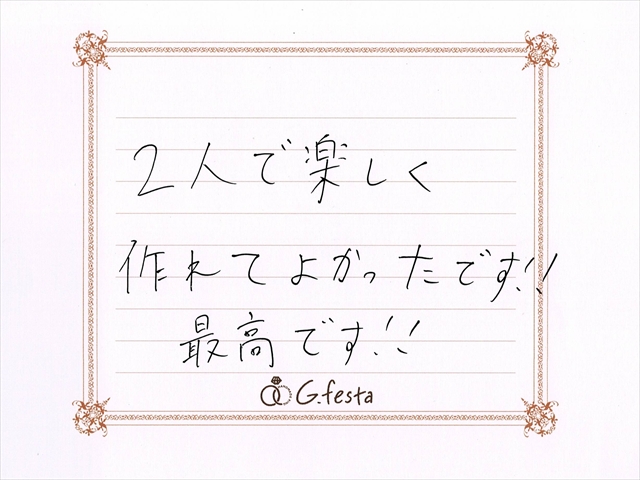 2人で楽しく
作れてよかったです!!
最高です!!
G.festa